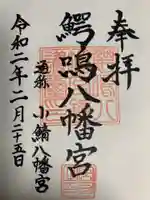 奉拝
鰐鳴八幡宮
小鯖八幡宮
令和二年二月二十五日